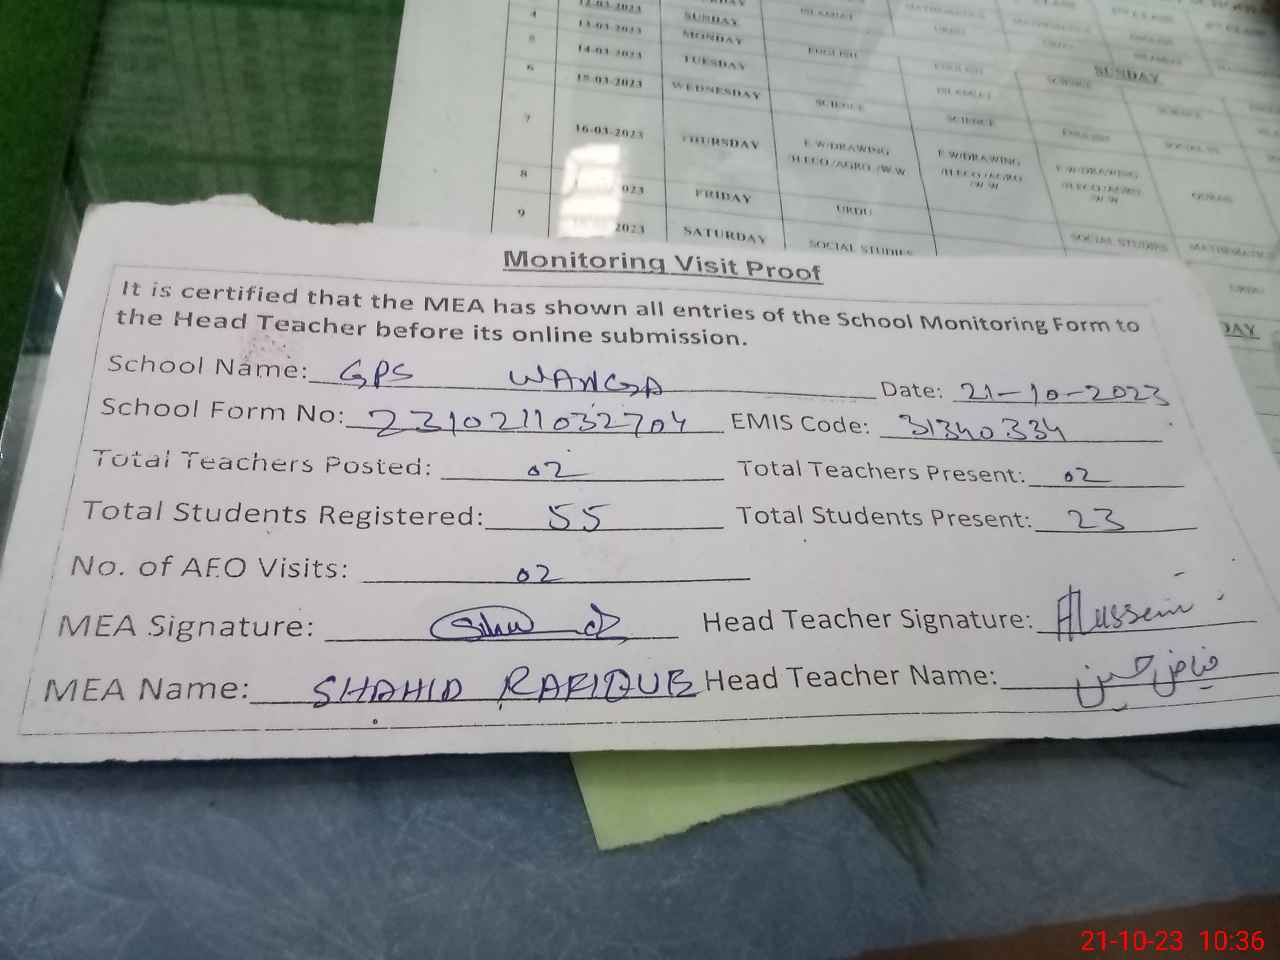 12-03-2023 SUNDAY ISLAMIAT MATHEMATICS
4 13-03-2023 MONDAY URDU
5 14-03-2023 TUESDAY ENGLISH ENGLISH SUNDAY
6 15-03-2023 WEDNESDAY SCIENCE ISLAMIAT SCIENCE SCIENCE
SCIENCE ENGLISH SOCIAL ST.
7 16-03-2023 THURSDAY F.W/DRAWING F.W/DRAWING F.W/DRAWING
/H.ECO/AGRO/W.W /H.ECO/AGRO /H.ECO/AGRO
/W.W /W.W
8 023 FRIDAY URDU
9 2023 SATURDAY SOCIAL STUDIES SOCIAL STUDIES MATHEMATICS
URDU
DAY
Monitoring Visit Proof
It is certified that the MEA has shown all entries of the School Monitoring Form to
the Head Teacher before its online submission.
School Name: GPS WANGA Date: 21-10-2023
School Form No: 2310211032704 EMIS Code: 31340334
Total Teachers Posted: 02 Total Teachers Present: 02
Total Students Registered: 55 Total Students Present: 23
No. of AEO Visits: 02
MEA Signature: Head Teacher Signature: Hussain
MEA Name: SHAHID RAFIQUE Head Teacher Name: فیاض حسین
21-10-23 10:36